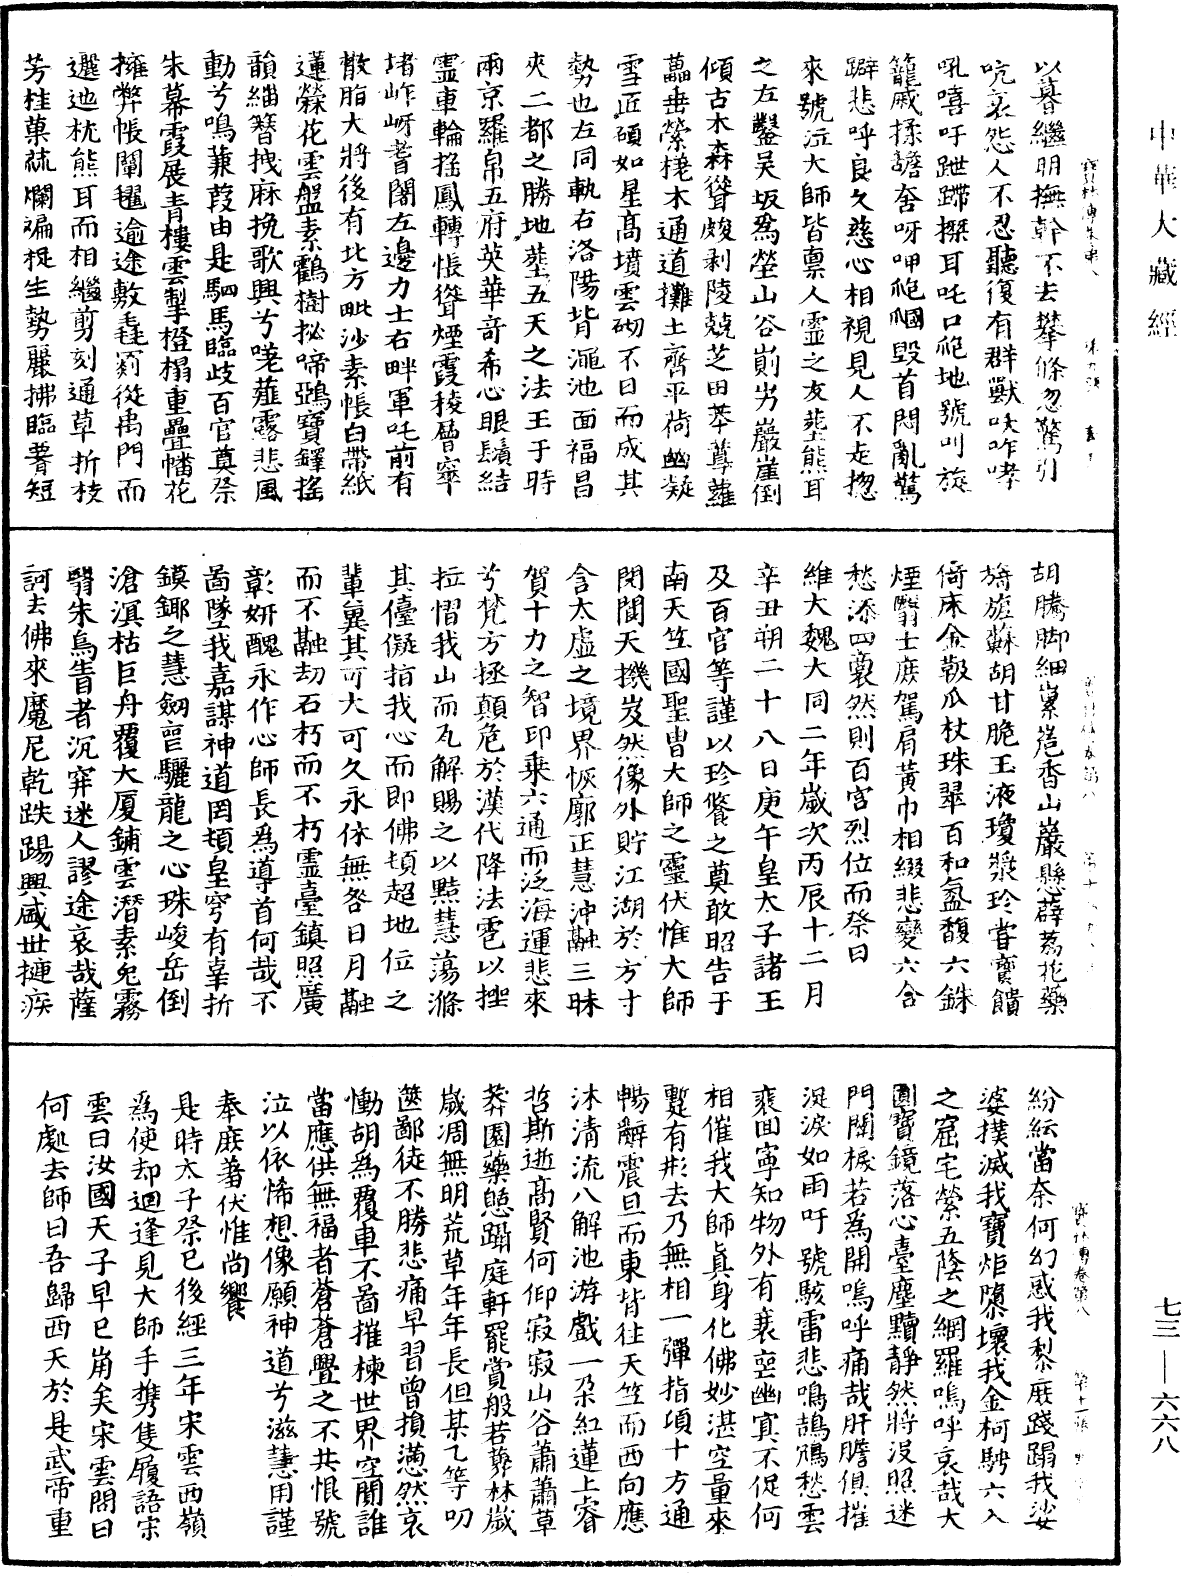 中華大藏經
以暮繼明撫幹不去攀條忽驚引
吭哀怨人不忍聽復有群獸吠咋哮
吼嘻吁跇蹛擛耳吒口䶕地號叫旋
籠戚揉譫奢呀呷䶕㡯毀首悶亂驚
躃悲呼良久慈心相視見人不走揔
來號泣大師皆禀人靈之友塟熊耳
之左鑿吴坂爲塋山谷崱屴巖崖倒
傾古木森聳皴剥陵兢芝田苯䔿蘿
藟垂縈㮴木通道攤土齊平荷幽凝
雪匝碩如星髙墳雲砌不日而成其
勢也左同軌右洛陽背澠池面福昌
夾二都之勝地塟五天之法王于時
兩京羅帛五府英華竒希心眼鬚結
靈車輪揺鳳轉悵聳煙霞稜層窣
堵岞岈耆闍左邊力士右畔軍吒前有
散脂大將後有北方毗沙素帳白帶紙
蓮縈花雲盤素鸖樹柲啼鵶寶鐸揺
韻緇簪拽麻挽歌興兮嗟薤露悲風
動兮鳴蒹葭由是駟馬臨歧百官奠祭
朱幕霞展青樓雲掣橙榻重疊幡花
擁弊帳闡毾逾途敷毳罽從禹門而
邐迆枕熊耳而相繼剪刻通草折枝
芳桂菓蓏爛褊梴生勢麗拂臨暮短
胡騰脚細稾葹香山巖懸薜荔花藥
旖旎蘇胡甘脆玉液瓊漿珍羞寶饋
倚床金勒瓜杖珠翠百和氳馥六銖
煙翳士庶駕肩黄巾相綴悲變六合
愁添四裔然則百官烈位而祭曰
維大魏大同二年歲次丙辰十二月
辛丑朔二十八日庚午皇太子諸王
及百官等謹以珍餐之奠敢昭告于
南天竺國聖冑大師之靈伏惟大師
閱閬天機岌然像外貯江湖於方寸
含太虚之境界恢廓正慧沖融三昧
賀十力之智印乗六通而泛海運悲來
兮梵方拯顛危於漢代降法雹以挫
拉慴我山而瓦解賜之以黠慧蕩滌
其儓儗指我心而即佛頓超地位之
輩冀其可大可久永休無咎日月融
而不融劫石朽而不朽靈臺鎮照廣
彰妍醜永作心師長爲導首何哉不
啚墜我嘉謀神道罔頓皇穹有辜折
鏌鎁之慧劒亶驪龍之心珠峻岳倒
滄溟枯巨舟覆大厦鋪雲潛素皃霧
翳朱烏眚者沉穽迷人謬途哀哉薩
訶去佛來魔尼乾跌踢興咸世摙疾
紛紜當奈何幻惑我黎庶踐蹋我娑
婆撲滅我寶炬隳壞我金柯騁六入
之窟宅縈五陰之網羅嗚呼哀哉大
圓寶鏡落心臺塵黷靜然將没照迷
門闡棙若爲開嗚呼痛哉肝膽俱摧
涊淚如雨吁號駭雷悲鳴鵠鴆愁雲
裵回寧知物外有衰㤀幽㝠不促何
相催我大師眞身化佛妙湛空量來
蹔有形去乃無相一彈指項十方通
暢辭震旦而東背往天竺而西向應
沐清流八解池游戲一朶紅蓮上睿
哲斯逝高賢何仰寂寂山谷蕭蕭草
莽園藥慿躡庭軒罷賞般若葬林歲
歲凋無明荒草年年長但某乙等叨
篋鄙徒不勝悲痛早習曽損懣然哀
慟胡爲覆車不啚摧棟世界空聞誰
當應供無福者蒼蒼疊之不共恨號
泣以依悕想像願神道兮滋慧用謹
奉㢘羞伏惟尚饗
是時太子祭已後經三年宋雲西嶺
爲使却迴逢見大師手携隻履語宋
雲曰汝國天子早已崩矣宋雲問曰
何處去師曰吾歸西天於是武帝重
七三—六六八